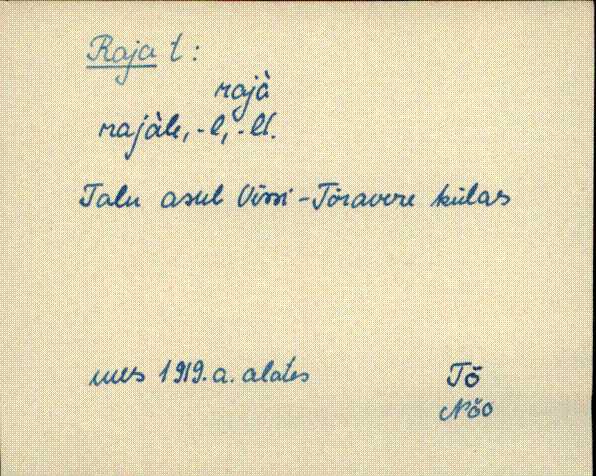 Raja t:
rajà
rajàle, -l, -lt.
Talu asub Vissi-Tõravere külas
uus 1919.a. alates
Tõ
Nõo